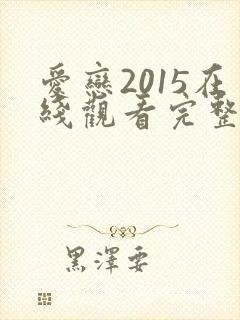 愛戀2015在
綫觀看完整
黑澤要